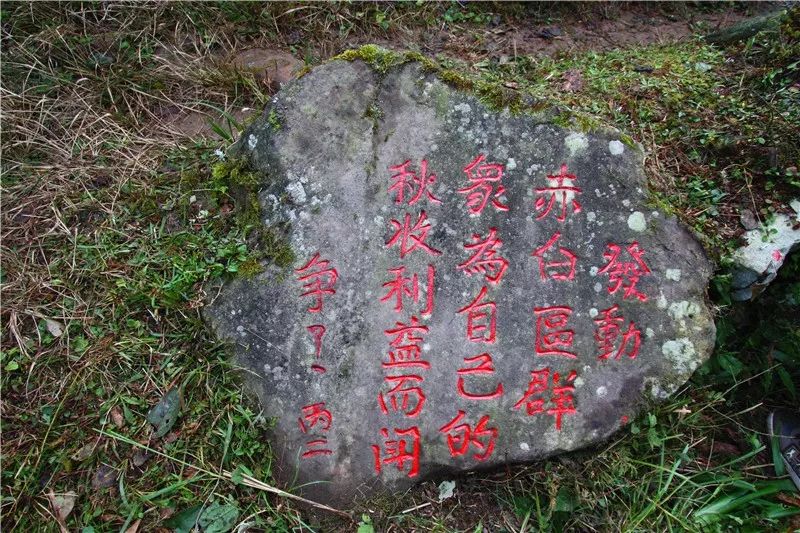 發動
赤白區群
衆為自己的
秋收利益而鬥
争了、丙二